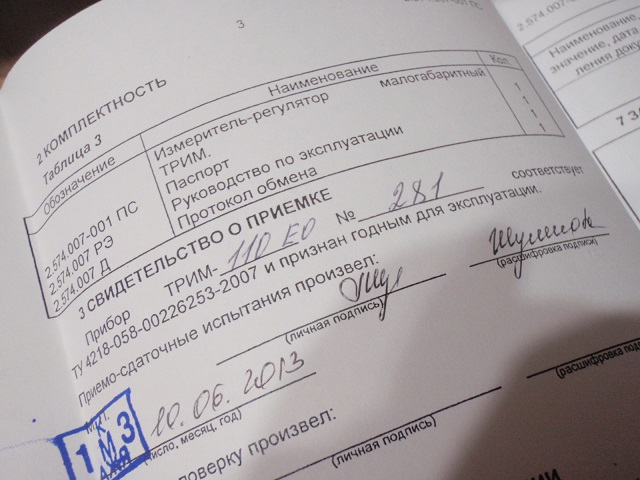 3
2 КОМПЛЕКТНОСТЬ
Таблица 3
Обозначение Наименование Кол.
2.574.007-001 ПС Измеритель-регулятор малогабаритный
ТРИМ. 1
Паспорт 1
2.574.007 РЭ Руководство по эксплуатации 1
2.574.007 Д Протокол обмена 1
3 СВИДЕТЕЛЬСТВО О ПРИЕМКЕ
Прибор ТРИМ- 110 ЕО № 281 соответствует
ТУ 4218-058-00226253-2007 и признан годным для эксплуатации.
Приемо-сдаточные испытания произвел:
(личная подпись) (расшифровка подписи)
10.06.2013
(число, месяц, год)
поверку произвел:
(личная подпись) (расшифровка
1 К М 3
2.574.007
Наименование,
значение, дата
ления доку
7 З